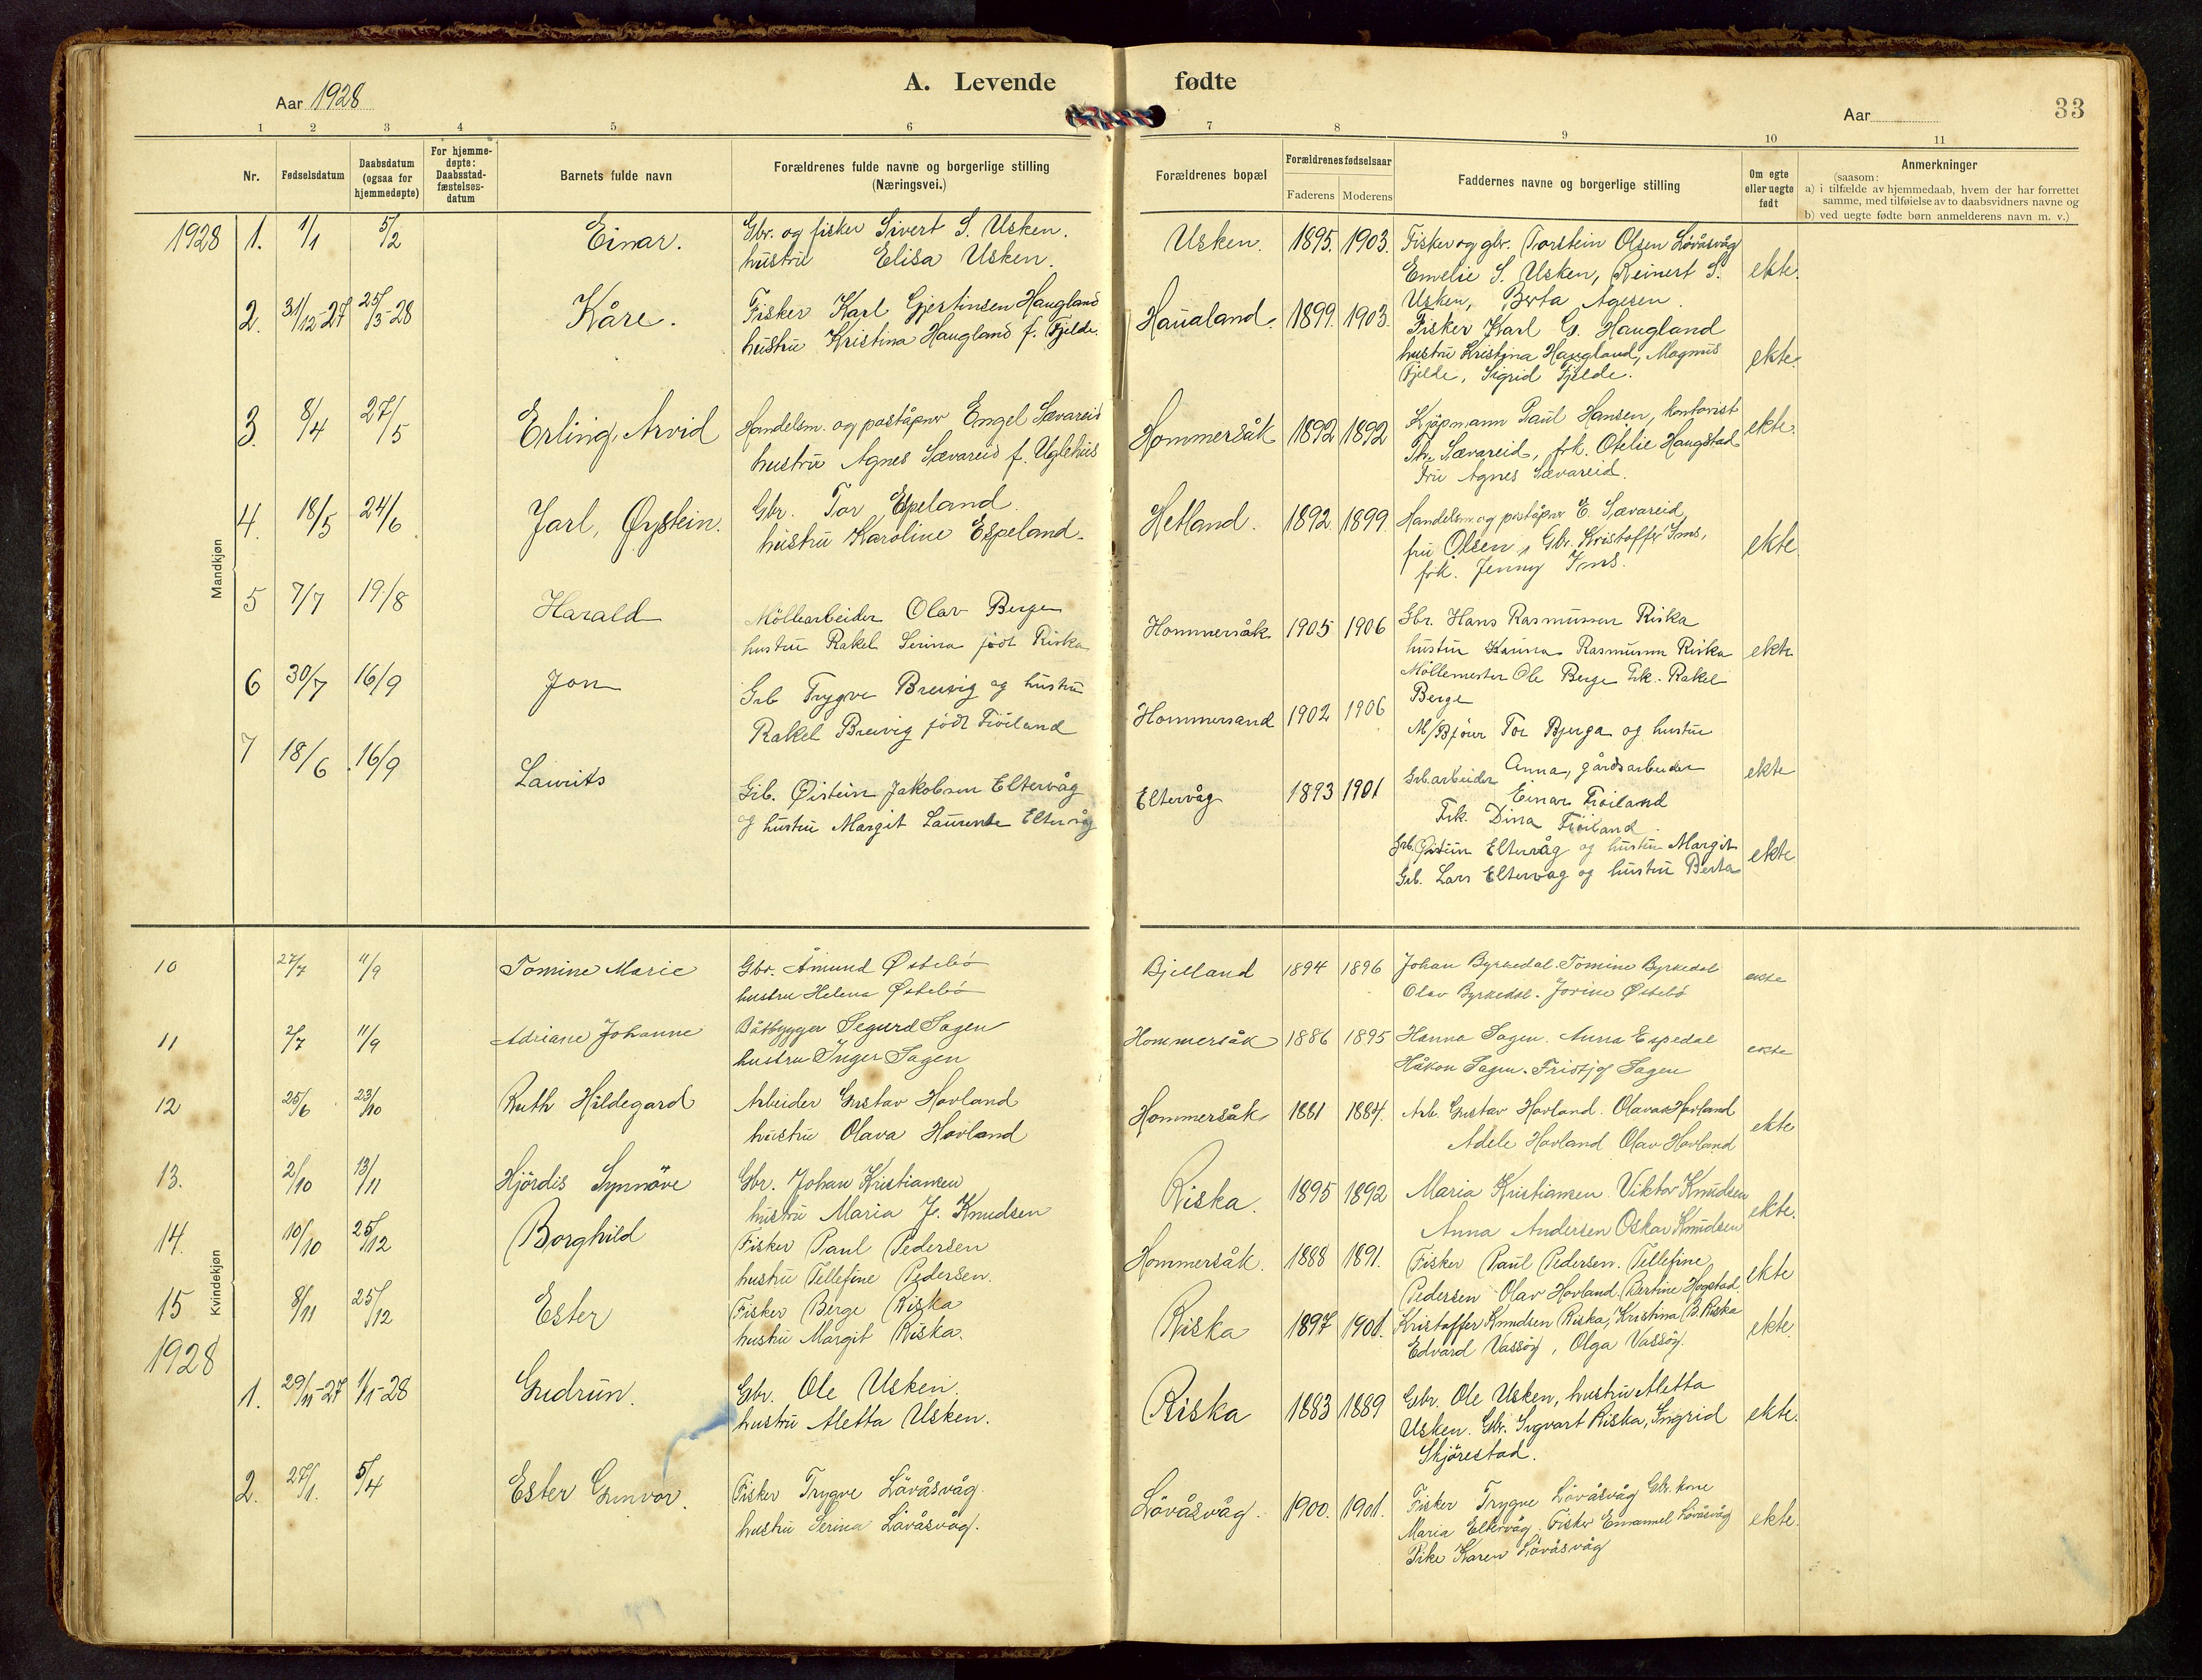 A. Levende fødte
Aar 1928
Aar
33
1 2 3 4 5 6 7 8 9 10 11
Nr.
Fødselsdatum
Daabsdatum
(ogsaa for
hjemmedøpte)
For hjemme-
døpte:
Daabsstad-
fæstelses-
datum
Barnets fulde navn
Forældrenes fulde navne og borgerlige stilling
(Næringsvei.)
Forældrenes bopæl
Forældrenes fødselsaar
Faderens Moderens
Faddernes navne og borgerlige stilling
Om egte
eller uegte
født
Anmerkninger
(saasom:
a) i tilfælde av hjemmedaab, hvem der har forrettet
samme, med tilføielse av to daabsvidners navne og
b) ved uegte fødte børn anmelderens navn m. v.)
Mandkjøn
1928 1. 1/1 5/2 Einar. Gbr. og fisker Sivert S. Usken.
hustru Elisa Usken.
Usken. 1895. 1903. Fisker og gbr. Torstein Olsen Lövåsvåg
Emelie S. Usken, Reinert S.
Usken, Berta Agesen.
ekte.
2. 31/12-27 25/3-28 Kåre. Fisker Karl Gjertinsen Haugland
hustru Kristina Haugland f. Fjelde.
Haualand. 1899. 1903. Fisker Karl G. Haugland
hustru Kristina Haugland, Magnus
Fjelde, Sigrid Fjelde.
ekte.
3. 8/4 27/5 Erling, Arvid Handelsm. og poståpner Engel Sævareid
hustru Agnes Sævareid f. Uglehus
Hommersåk 1892 1892 Kjøpmann Paul Hansen, kontorist
Th. Sævareid, frk. Otelie Haugstad
Fru Agnes Sævareid.
ekte.
4. 18/5 24/6 Jarl, Øystein. Gbr. Tor Espeland
hustru Karoline Espeland.
Hetland. 1892 1899. Handelsm. og poståpner E. Sævareid,
fru Olsen, Gbr. Kristoffer Ims,
frk. Jenny Ims.
ekte
5 7/7 19/8 Harald Möllearbeider Olav Berge
hustru Rakel Serina født Riska
Hommersåk 1905 1906 Gbr. Hans Rasmussen Riska
hustru Karina Rasmussen Riska
Möllemester Ole Berge Frk. Rakel
Berge
ekte
6 30/7 16/9 Jon Grb Trygve Breivig og hustru
Rakel Breivig født Frøiland
Hommersand 1902 1906 M/Bfører Tor Bjerga og hustru
Anna, gårdsarbeider
Einar Frøiland
Frk. Dina Frøiland
ekte
7 18/6 16/9 Laurits Grb. Øistein Jakobsen Eltervåg
og hustru Margit Laurentse Eltervåg
Eltervåg 1893 1901 Grb. arbeider
Grb. Øistein Eltervåg og hustru Margit
Grb. Lars Eltervag og hustru Berta
ekte
Kvindekjøn
10 27/7 11/9 Tomine Marie Gbr. Åmund Østebö
hustru Helena Østebö
Bjelland 1894 1896 Johan Byrkedal. Tomine Byrkedal
Olav Byrkedal. Jorine Østebö
ekte
11 2/7 11/9 Adriane Johanne Båtbygger Segurd Sagen
hustru Inger Sagen
Hommersåk 1886 1895 Hanna Sagen. Anna Espedal
Håkon Sagen. Fridtjof Sagen
ekte
12 25/6 23/10 Ruth Hildegard Arbeider Gustav Hovland
hustru Olava Hovland
Hommersåk 1881 1884. Arb. Gustav Hovland. Olava Hovland
Adele Hovland Olav Hovland
ekte
13. 2/10 13/11 Hjördis Synnöve Gbr. Johan Kristiansen
hustru Maria J. Knudsen
Riska. 1895 1892 Maria Kristiansen. Viktor Knudsen
Anna Andersen Oskar Knudsen
ekte.
14. 10/10 25/12 Borghild Fisker Paul Pedersen
hustru Tellefine Pedersen.
Hommersåk. 1888 1891. Fisker Paul Pedersen. Tellefine
Pedersen Olav Hovland. Bertine Hogstad.
ekte
15 8/11 25/12 Ester Fisker Berge Riska
hustru Margit Riska.
Riska 1897 1901. Kristoffer Knudsen Riska, Kristina B. Riska
Edvard Vassöy, Olga Vassöy.
ekte.
1928
1. 29/11-27 1/1-28 Gudrun. Gbr. Ole Usken.
hustru Aletta Usken.
Riska 1883 1889 Gbr. Ole Usken, hustru Aletta
Usken. Gbr. Ingvart Riska, Ingrid
Skjörestad.
ekte.
2. 27/1. 5/4 Ester Gunvor. Fisker Trygve Lövåsvåg.
hustru Serina Lövåsvåg.
Lövåsvåg. 1900. 1901. Fisker Trygve Lövåsvåg Gbr. kone
Maria Eltervåg. Fisker Emanuel Lövåsvåg
Pike Karen Lövåsvåg
ekte.